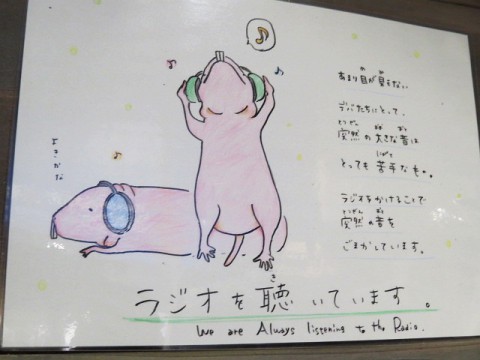 あまり目が見えない
デバたちにとって、
突然の大きな音は
とっても苦手なもの。
ラジオをかけることで
突然の音を
ごまかしています。
よきかな
ラジオを聴いています。
We are Always listening to the Radio.